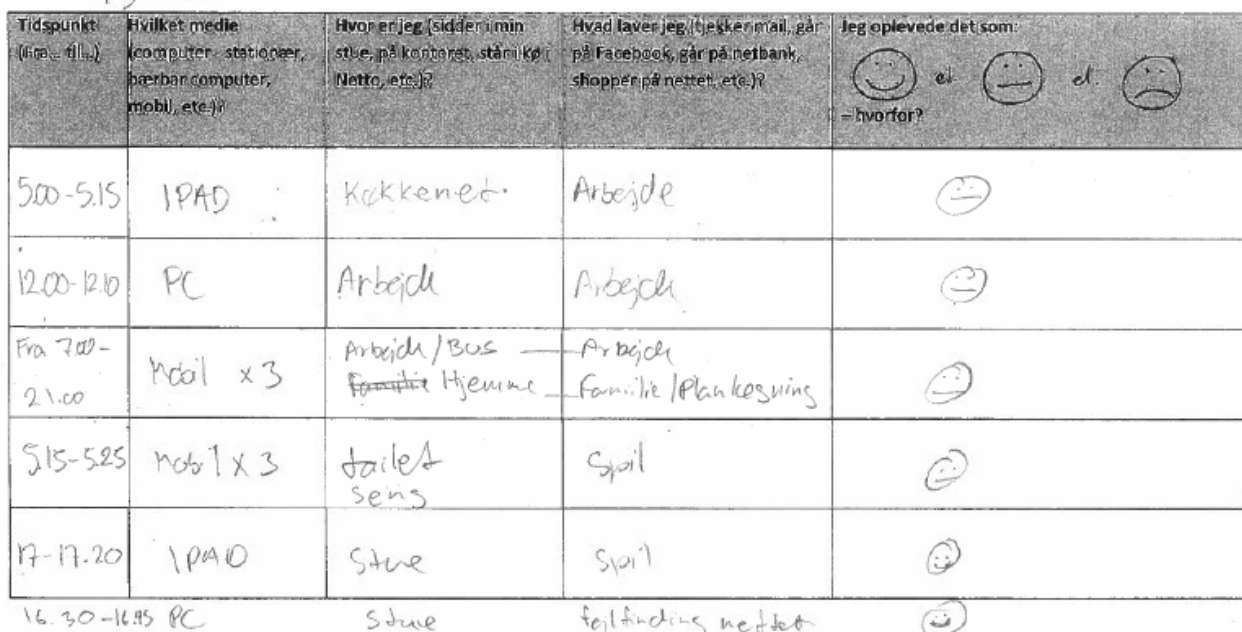 Tidspunkt (fra... til...)
Hvilket medie (computer - stationær, bærbar computer, mobil, etc.)?
Hvor er jeg (sidder i min stue, på kontoret, står i kø i Netto, etc.)?
Hvad laver jeg (tjekker mail, går på Facebook, går på netbank, shopper på nettet, etc.)?
Jeg oplevede det som:
el el.
– hvorfor?
5.00-5.15 IPAD Køkkenet. Arbejde
12.00-12.10 PC Arbejde Arbejde
Fra 7.00-21.00 Mobil x 3 Arbejde/Bus — Arbejde
Familie Hjemme — Familie/Planlægning
5.15-5.25 Mobil x 3 toilet seng Spil
17-17.20 IPAD Stue Spil
16.30-16.45 PC Stue fejlfinding nettet